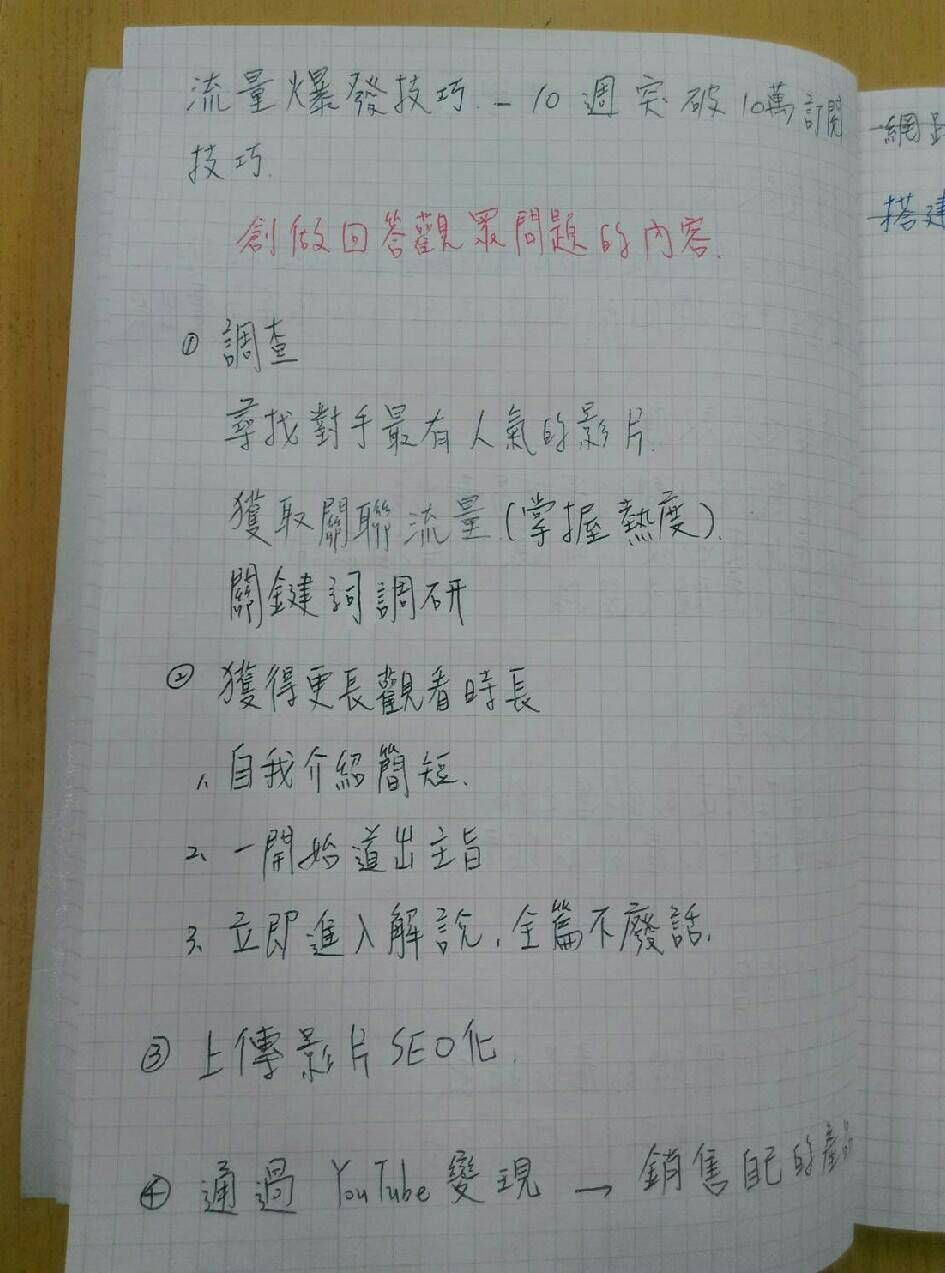 流量爆發技巧.－10週突破10萬訂閱
技巧.
創做回答觀眾問題的內容.
① 調查
尋找對手最有人氣的影片.
獲取關聯流量(掌握熱度).
關鍵詞調研
② 獲得更長觀看時長
1. 自我介紹簡短.
2. 一開始道出主旨
3. 立即進入解說,全篇不廢話.
③ 上傳影片SEO化.
④ 通過 YouTube變現 → 銷售自己的產品
網
搭建